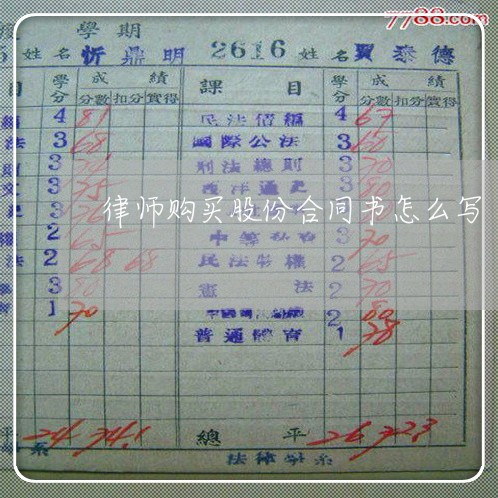 7788.com
學期
5 姓名 忻鼎明 2616 姓名 賈泰德
目 學分 成績 課目 學分 成績
分數 扣分 實得 分數 扣分 實得
4 81 民法債編 4 67
法 3 68 國際公法 3 60
3 刑法總則 3 70
3 75 西洋通史 3 80
律师购买股份合同书怎么写
2 65 3 70
法 2 68 68 民法物權 2 65
3 80 憲法 2 70
1 70 2 80
普通體育 1 78
平 24 74.1 總平 26 72.3
系 法律學系